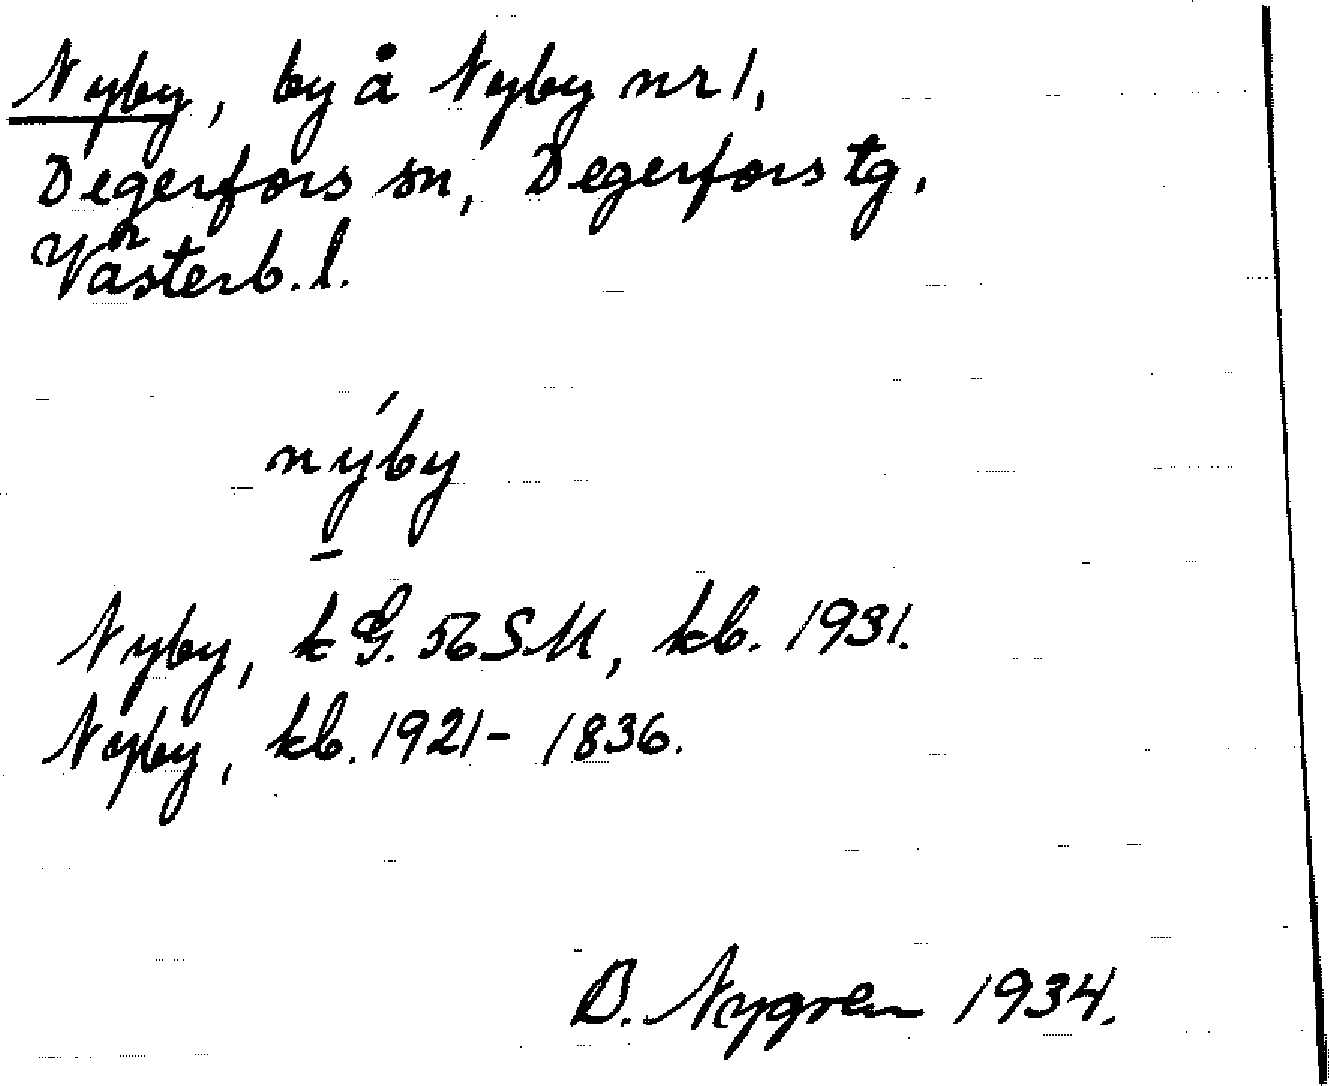 Nyby, by å Nyby nr 1,
Degerfors sn, Degerfors tg.
Västerb. l.
nýby
Nyby, k G. 56 SM, kb. 1931.
Nyby, kb. 1921 - 1836.
B. Nygren 1934.